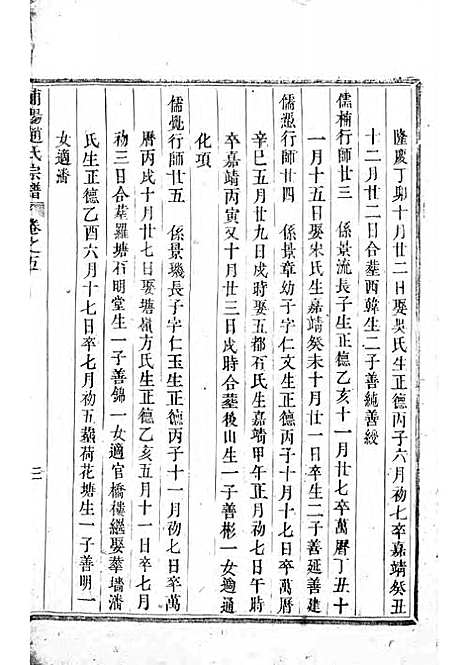 隆慶丁卯十月廿二日娶吳氏生正德丙子六月初七卒嘉靖癸丑
十二月廿二日合塟西韓生二子善純善綬
儒楠行師廿三　係景流長子生正德乙亥十一月廿七卒萬曆丁丑十
一月十五日娶宋氏生嘉靖癸未十月廿一日卒生二子善延善建
儒行師廿四　係景章幼子字仁文生正德丙子十月初七日卒萬曆
辛巳五月廿九日戌時娶五都石氏生嘉靖甲午正月初七日午時
卒嘉靖丙寅又十月廿三日戌時合塟後山生一子善彬一女適通
化項
儒覺行師廿五　係景璣長子字仁玉生正德丙子十一月初七日卒萬
曆丙戌十月廿七日娶塘嶺方氏生正德乙亥五月十一日卒七月
初三日合塟羅塘石明堂生一子善錦一女適官橋樓繼娶塟墻潘
氏生正德乙酉六月十七日卒七月初五塟荷花塘生一子善明一
女適潘
浦陽趙氏宗譜　卷之五　三